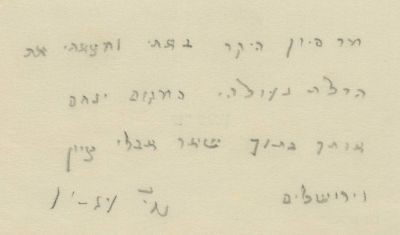 מר סיון היקר באתי ומצאתי את
הדלת נעולה. המקום ינחם
אותך בתוך שאר אבלי ציון
וירושלים